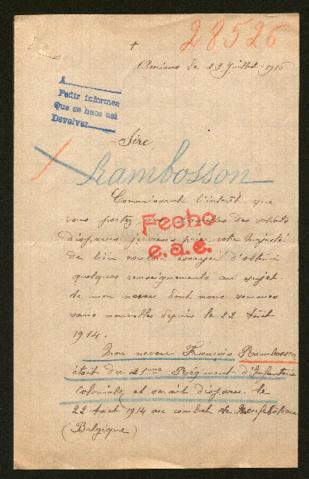 28526
Amiens le 29 Juillet 1916
A
Pedir informes
que se hace así
Devolver
Sire
Rambosson
Connaissant l'intérêt que
vous portez aux familles des soldats
disparus je viens prier votre Majesté
de bien vouloir essayer d'obtenir
quelques renseignements au sujet
de mon neveu dont nous sommes
sans nouvelles depuis le 22 Août
1914.
Fecho
e.a.e.
Mon neveu François Rambosson
était du 21ème Régiment d'Infanterie
Coloniale et serait disparu le
22 Août 1914 au combat de
(Belgique)